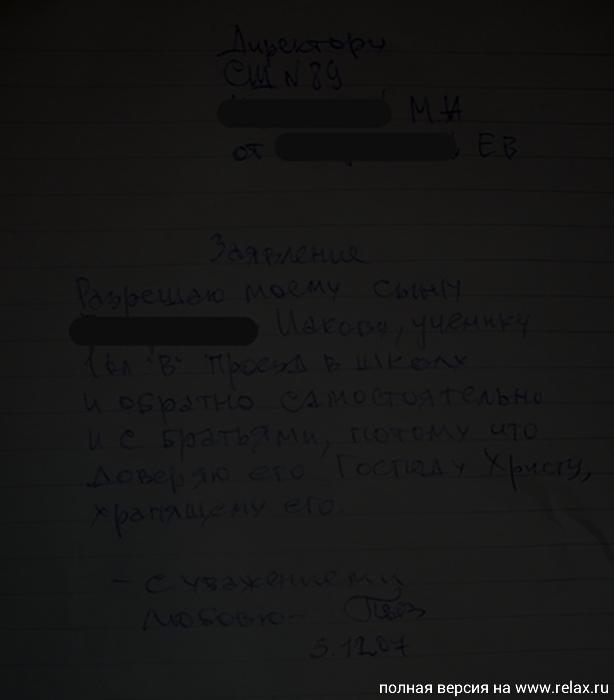 Директору
СШ N 89
М.И
от Е В
Заявление
Разрешаю моему сыну
Иакову, ученику
1 кл "В" проезд в школу
и обратно самостоятельно
и с братьями, потому что
доверяю его Господу Христу,
хранящему его.
- с уважением и
любовью -
3.12.07
полная версия на www.relax.ru